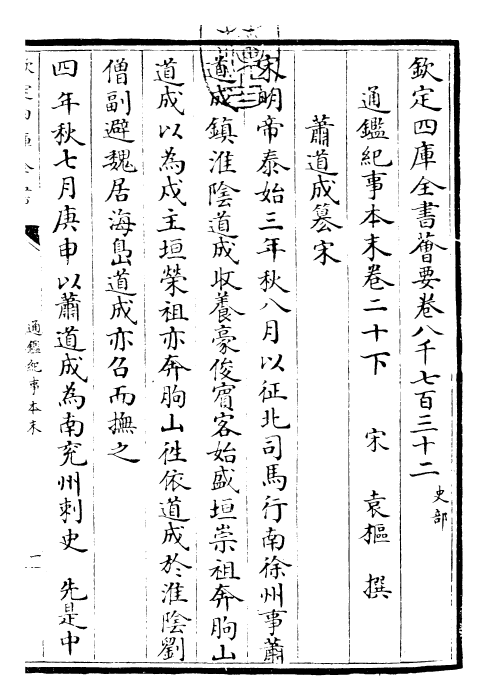 欽定四庫全書薈要卷八千七百三十二
史部
通鑑紀事本末卷二十下
宋 袁樞 撰
蕭道成篡宋
宋明帝泰始三年秋八月以征北司馬行南徐州事蕭
道成鎮淮陰道成收養豪俊賓客始盛垣崇祖奔朐山
道成以為戍主垣榮祖亦奔朐山徃依道成於淮陰劉
僧副避魏居海島道成亦召而撫之
四年秋七月庚申以蕭道成為南兖州刺史 先是中
欽定四庫全書
通鑑紀事本末
一